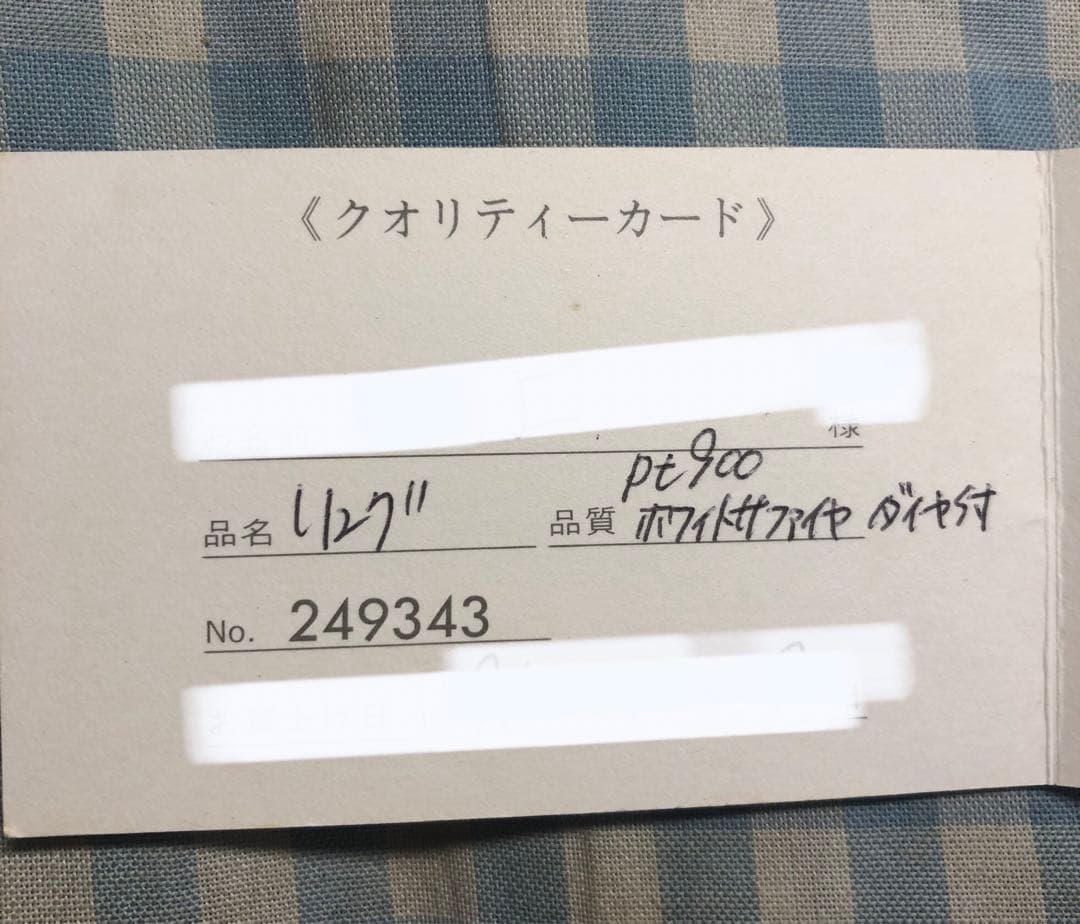 《クオリティーカード》
様
品名 リング 品質 Pt900
ホワイトサファイヤ ダイヤ付
No. 249343